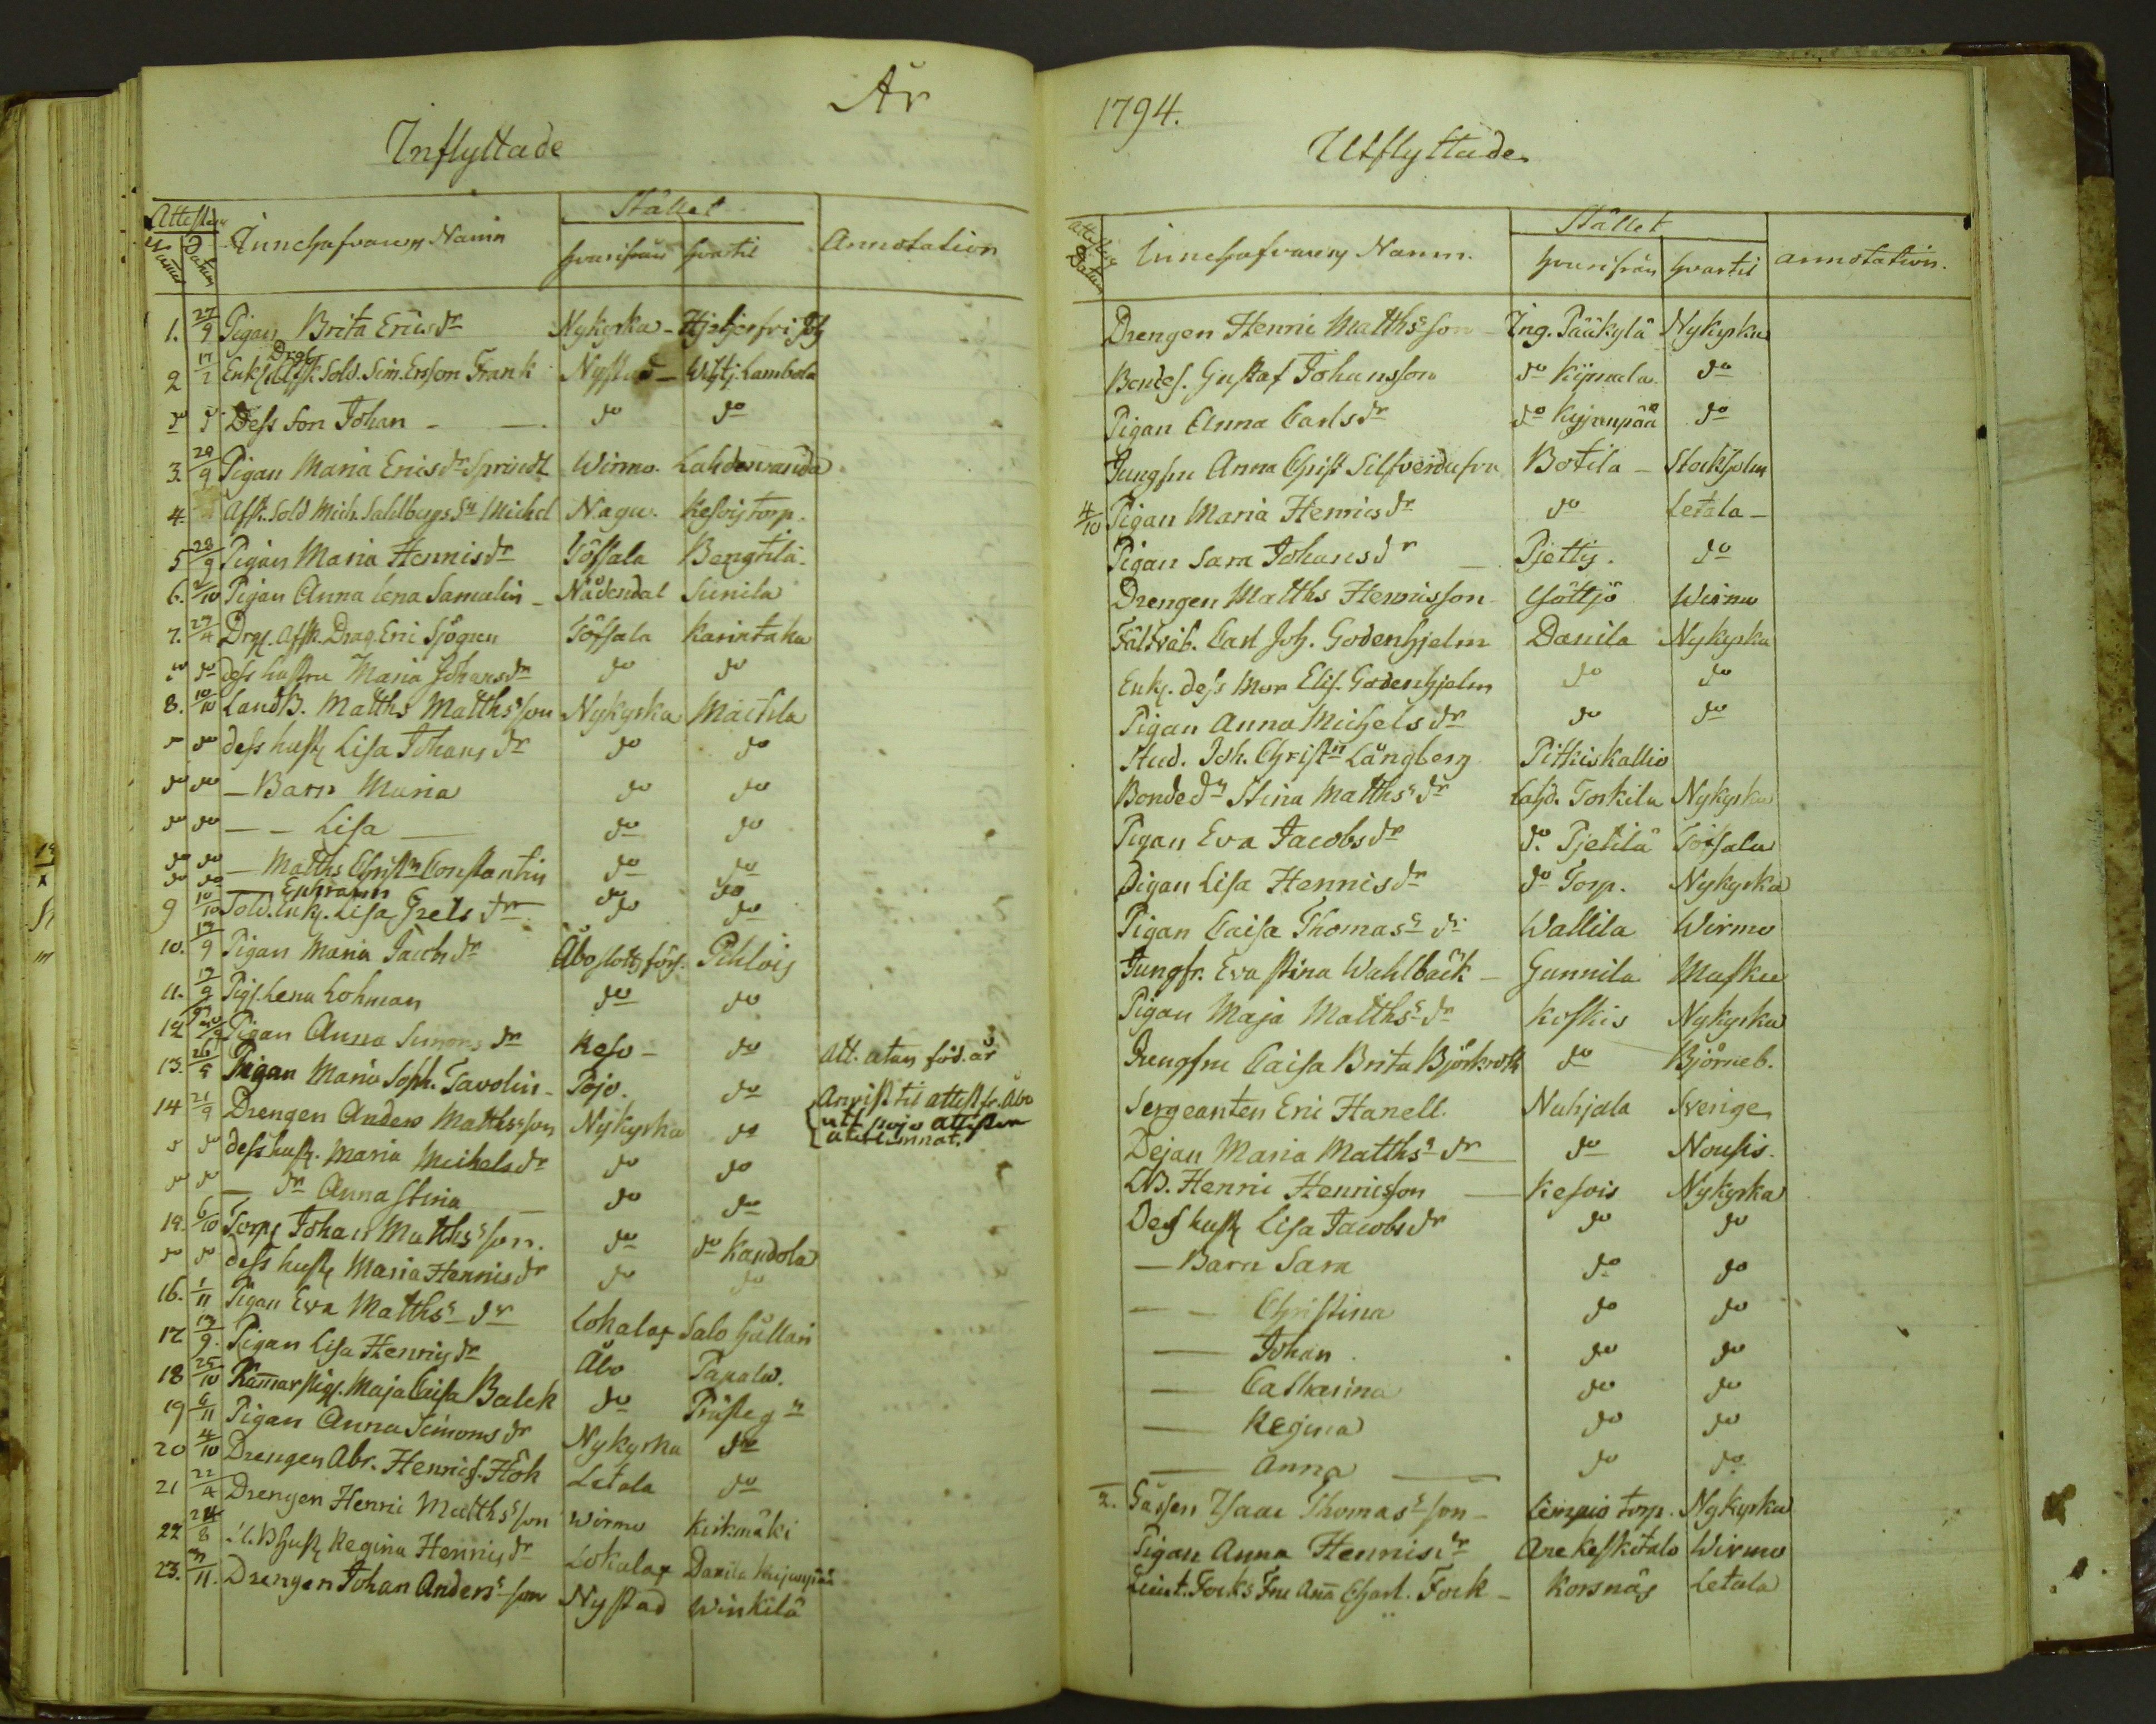 År
Inflyttade
Attesters
Numer Datum Innehafvarens Namn
Stället
hvarifrån hvartil
Annotation
1. 27/9 Pigan Brita Ericsdr Nykyrka - Hjetjerfvi
Drgs
2 17/2 Enkl. Afsk. Sold. Sim. Ersson Frank Nystad - Lambola
do do Dess Son Johan - do do
3. 28/9 Pigan Maria Ericsdr Sprindt Wirmo. Lahdenranda
4. Afsk. Sold Mich. Sahlbergs Sn Michel Nagu. Kesvis torp.
5 28/9 Pigan Maria Henricsdr Töfsala Bengtilä
6. 2/10 Pigan Anna Lena Samulin - Nådendal Sunila
7. 27/4 Drgs. Afsk. Drag. Eric Sjögren Töfsala Karintaka
do do dess hustru Maria Johansdr do do
8. 10/10 LandB. Matths Matthsson Nykyrka Mattila
do do dess hust. Lisa Johansdr do do
do do - Barn Maria do do
do do - - Lisa - do do
do do - Matths Christn Constantin do do
do do - Ephraim do do
9 10/10 Sold. Enk. Lisa Grels dr do do
10. 12/9 Pigan Maria Jacobsdr Åbo slotts förs. Pihlvis
11. 12/9 Pigs. Lena Lohman do do
12 Pigan Anna Simons dr Keso - do Att. utan föd. år
13. 26/5 Pigan Maria Soph. Tavolin - Pojo. do Anvist til attest fr. Åbo
14 21/9 Drengen Anders Matthsson Nykyrka do utf pojo attesten
återlemnat.
do do dess hust. Maria Michelsdr do do
do do - dr Anna Stina do do
19. 6/10 Torps Johan Matthsson. do do Kandola
do do dess hust. Maria Henricsdr do do
16. 1/11 Pigan Eva Matths dr Lokalax Salo Hällari
17 12/9. Pigan Lisa Henricsdr Åbo Papala.
18 25/10 Kamarpigs. Maja Caisa Balck do Prästegn
19 6/11 Pigan Anna Simons dr Nykyrka do
20 4/10 Drengen Abr. Henrics. Hök Letala do
21 22/4 Drengen Henric Matthsson Wirmo Kirkmäki
22 24/8 L.B hust. Regina Henricsdr Lokalax Danila Kujanpää
23. /11. Drengen Johan Andersson Nystad Winkilä
1794.
Utflyttade
Attesters
Datum Innehafvarens Namn.
Stället
hvarifrån hvartil
annotation.
Drengen Henric Matthsson - Ing. Pääkylä Nykyrka
Bondes. Gustaf Johansson do Kijmala do
Pigan Anna Carlsdr do Kujanpää do
Jungfru Anna Christ Silfverdufva Botila - Stockholm
4/10 Pigan Maria Henricsdr do Letala -
Pigan Sara Johansdr - Pjettis. do
Drengen Matths Henricsson Göltjö Wirmo
Fältväb. Carl Joh. Godenhjelm Danila Nykyrka
Enk. dess Mor Elis. Godenhjelm do do
Pigan Anna Michelsdr do do
Stud. Joh. Christn Långberg Pitkiskallio
Bonde dn Stina Matths dr Lahd. Torkila Nykyrka
Pigan Eva Jacobsdr do. Pjetilä Töfsala
Pigan Lisa Henricsdr do Torp. Nykyrka
Pigan Caisa Thomas dr Wallila Wirmo
Jungfr. Eva Stina Wahlbäck - Gunnila Masku
Pigan Maja Matths dr Koskis Nykyrka
Jungfru Caisa Brita Björkroth do Björneb.
Sergeanten Eric Hanell. Nuhjala Sverige
Dejan Maria Matths dr do Nousis.
LB. Henric Henricsson - Kesvis Nykyrka
Des hust. Lisa Jacobsdr do do
- Barn Sara do do
- - Christina do do
- Johan do do
- Catharina do do
- Regina do do
- Anna - do do
2. Gåssen Isaac Thomasson - Limpio torp. Nykyrka
Pigan Anna Henricsdr Arekeskitalo Wirmo
Lieut. Focks Fru Ana Charl. Fock - Korsnäs Letala